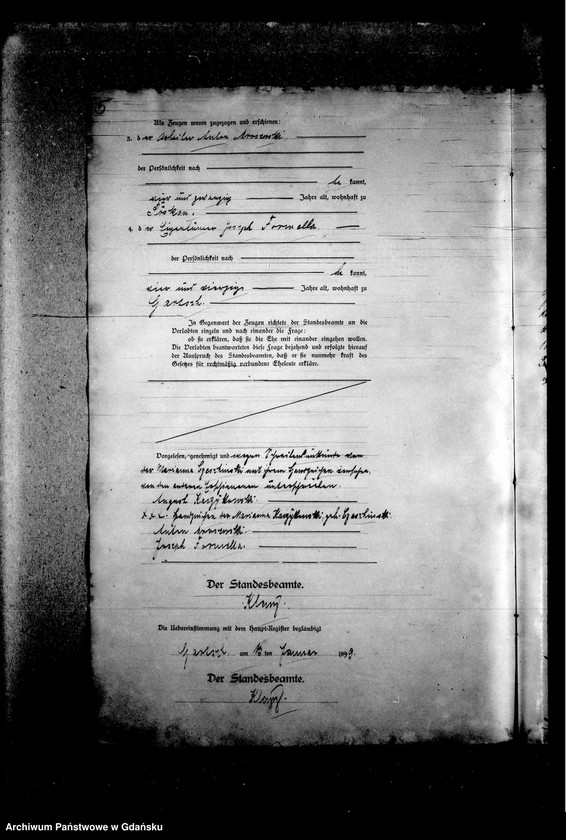 Als Zeugen waren zugezogen und erschienen:
3. der Arbeiter Anton
der Persönlichkeit nach
be kannt,
vier und zwanzig Jahre alt, wohnhaft zu
4. der Eigentümer Joseph Formella.
der Persönlichkeit nach
be kannt,
vier und vierzig Jahre alt, wohnhaft zu
Gartsch.
In Gegenwart der Zeugen richtete der Standesbeamte an die
Verlobten einzeln und nach einander die Frage:
ob sie erklären, daß sie die Ehe mit einander eingehen wollen.
Die Verlobten beantworteten diese Frage bejahend und erfolgte hierauf
der Ausspruch des Standesbeamten, daß er sie nunmehr kraft des
Gesetzes für rechtmäßig verbundene Eheleute erkläre.
Vorgelesen, genehmigt und wegen Schreibensunkunde von
der Marianne mit ihrem Handzeichen versehen,
von den anderen Erschienenen unterschrieben.
August
+++ Handzeichen der Marianne geb.
Anton
Joseph Formella.
Der Standesbeamte.
Die Uebereinstimmung mit dem Haupt-Register beglaubigt
Gartsch am 13 ten Januar 1899.
Der Standesbeamte.
Archiwum Państwowe w Gdańsku